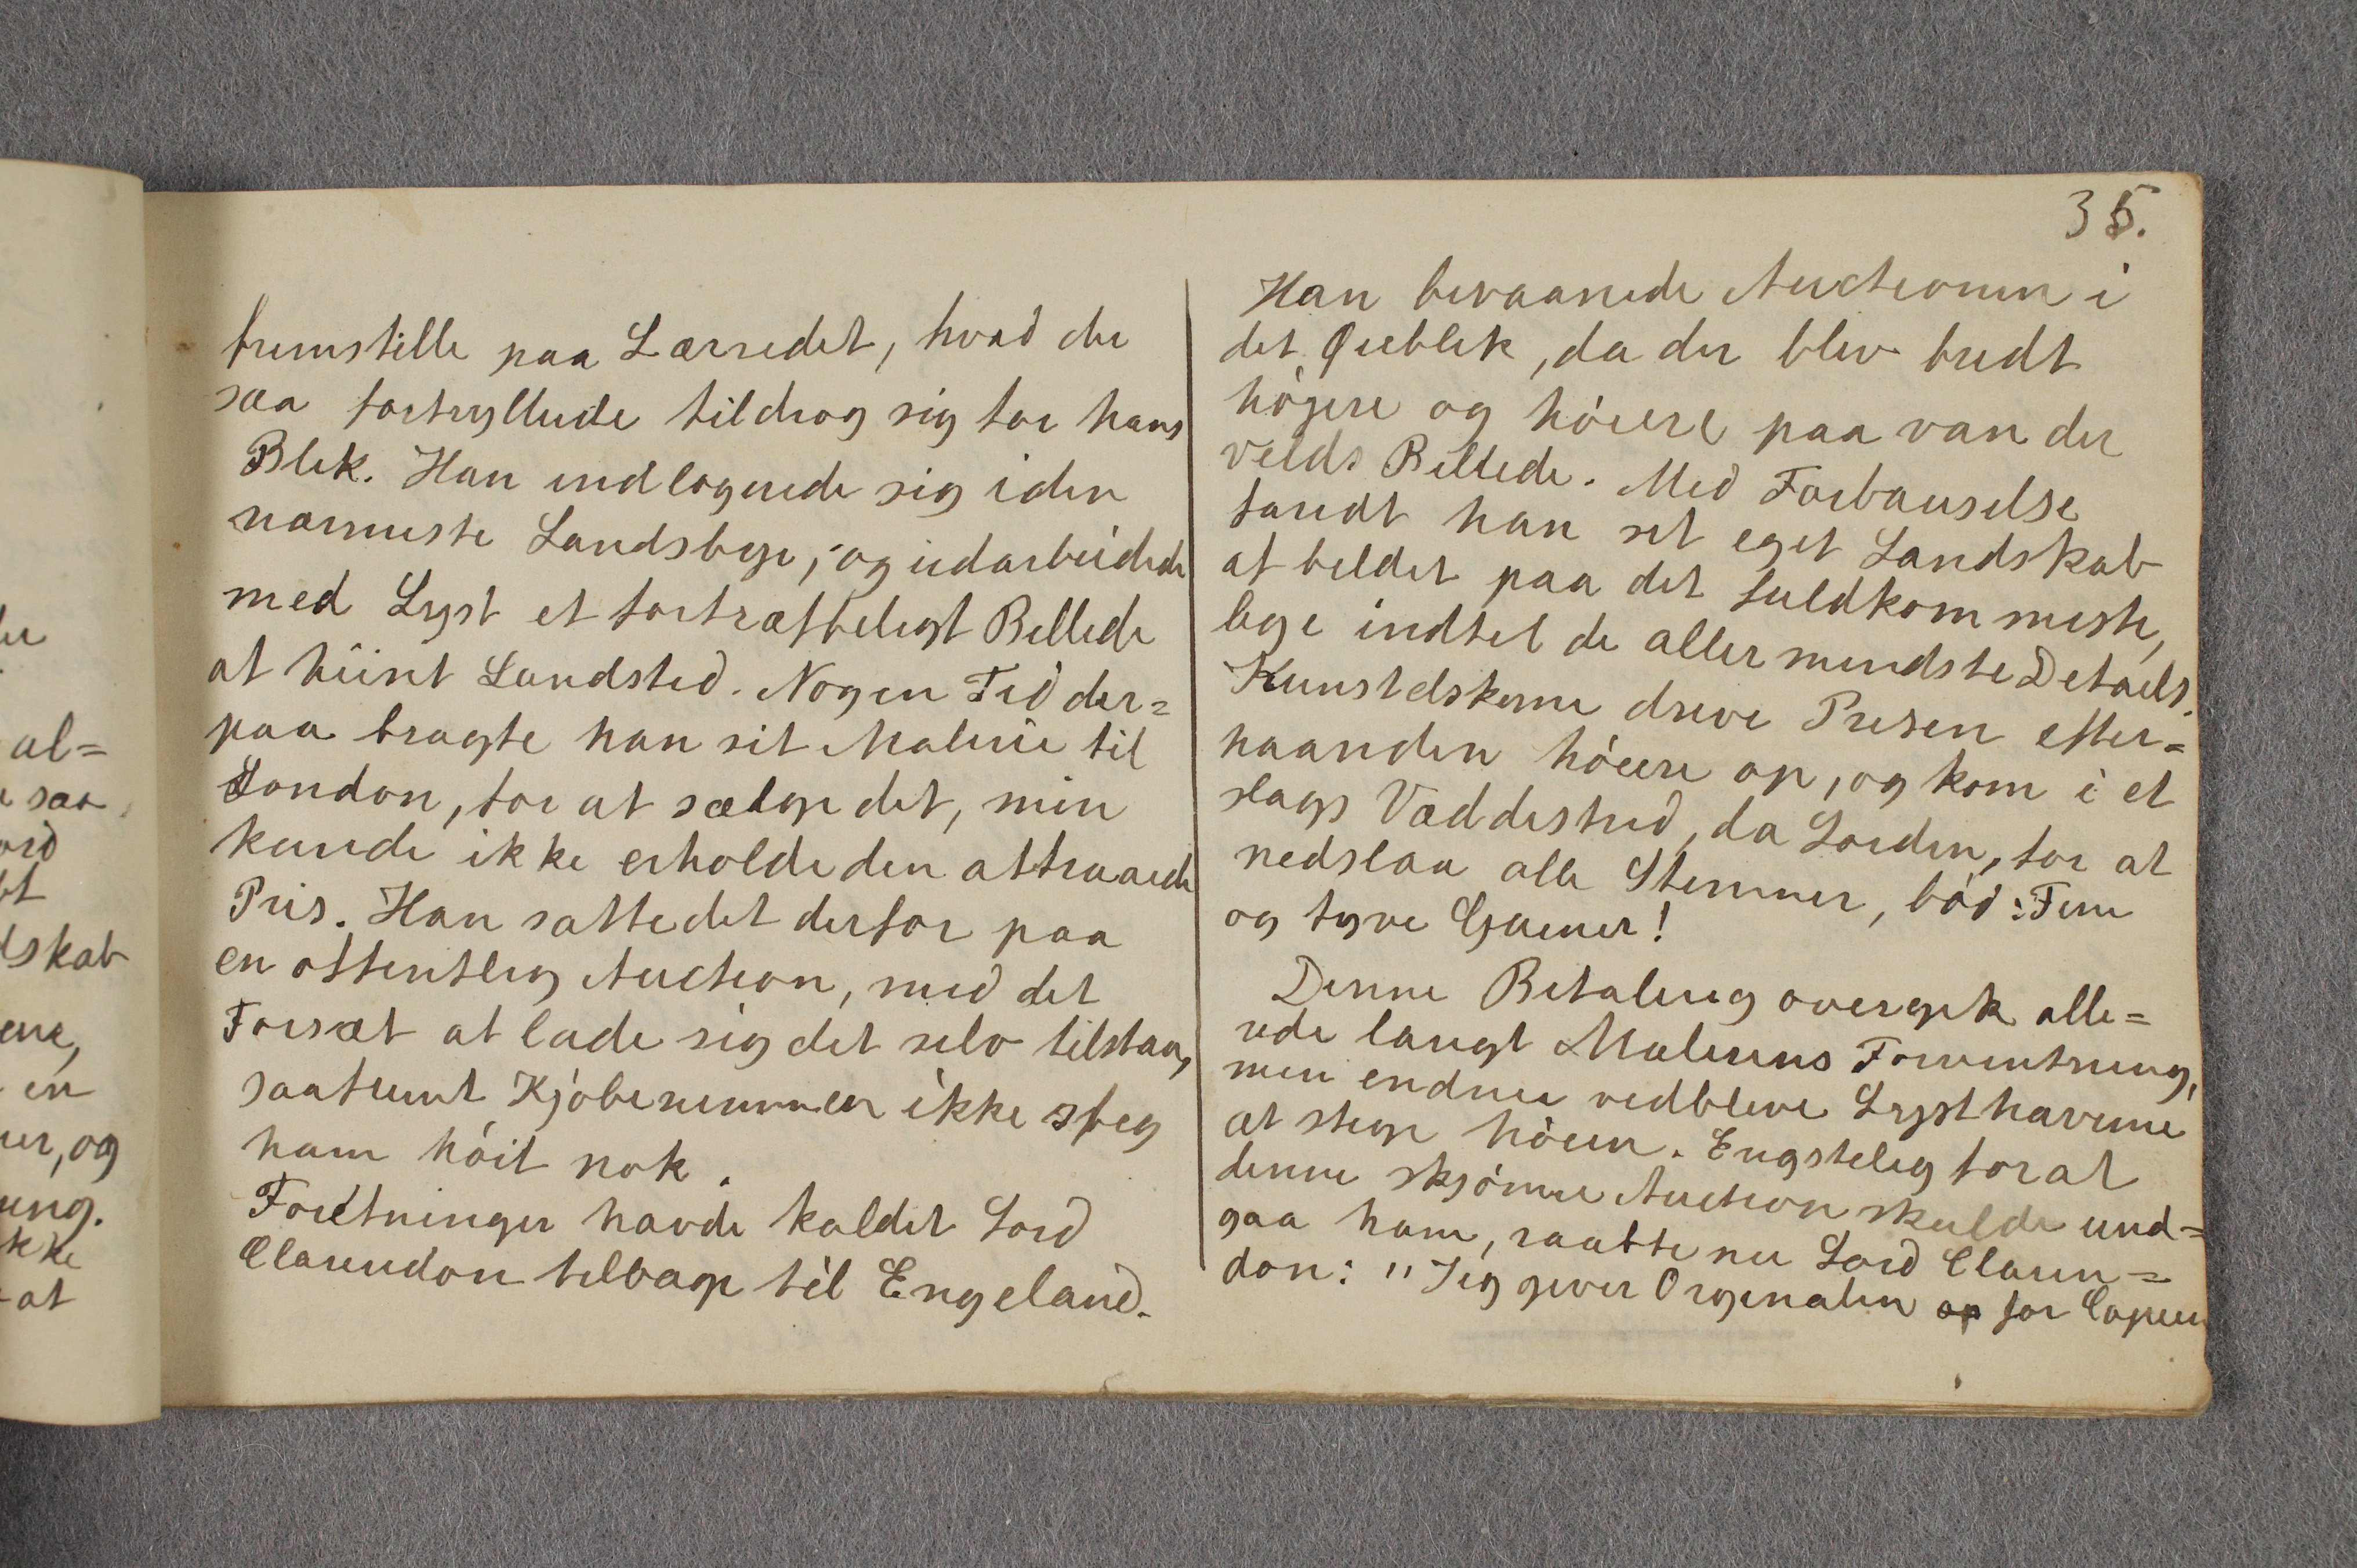 35.
fremstille paa Lærredet, hvad der
saa fortryllede tildrog sig for hans
Blik. Han indlogerede sig i den
nærmeste Landsbye, og udarbeidede
med Lyst et fortræffeligt Billede
af hiint Landsted. Nogen Tid der=
paa bragte han sit Malerie til
London, for at sælge det, men
kunde ikke erholde den attraaede
Pris. Han satte det derfor paa
en offentlig Auction, med det
Forsæt at lade sig det selv tilslaae,
saafremt Kjøbesummen ikke steg
ham høit nok.
Foretninger havde kaldet Lord
Clarendon tilbage til Engeland.
Han bivaanede Auctionen i
det Øieblik, da der blev budt
høiere og høiere paa van der
Velds Billede. Med Forbauselse
fandt han sit eget Landskab
afbildet paa det fuldkommneste,
lige indtil de aller mindste Details.
Kunstelskerne dreve Prisen efter=
haanden høiere op, og kom i et
slags Væddestrid, da Lorden, for at
nedslaa alle Stemmer, bød: Fem
og tyve Guineer!
Denne Betaling overgik alle=
rede langt Malerens Forventning,
men endnu vedbleve Lysthaverne
at stige høiere. Engstelig for at
denne skjønne Auction skulde und=
gaa ham, raabte nu Lord Claren=
don: "Jeg giver Orginalen op for Copien